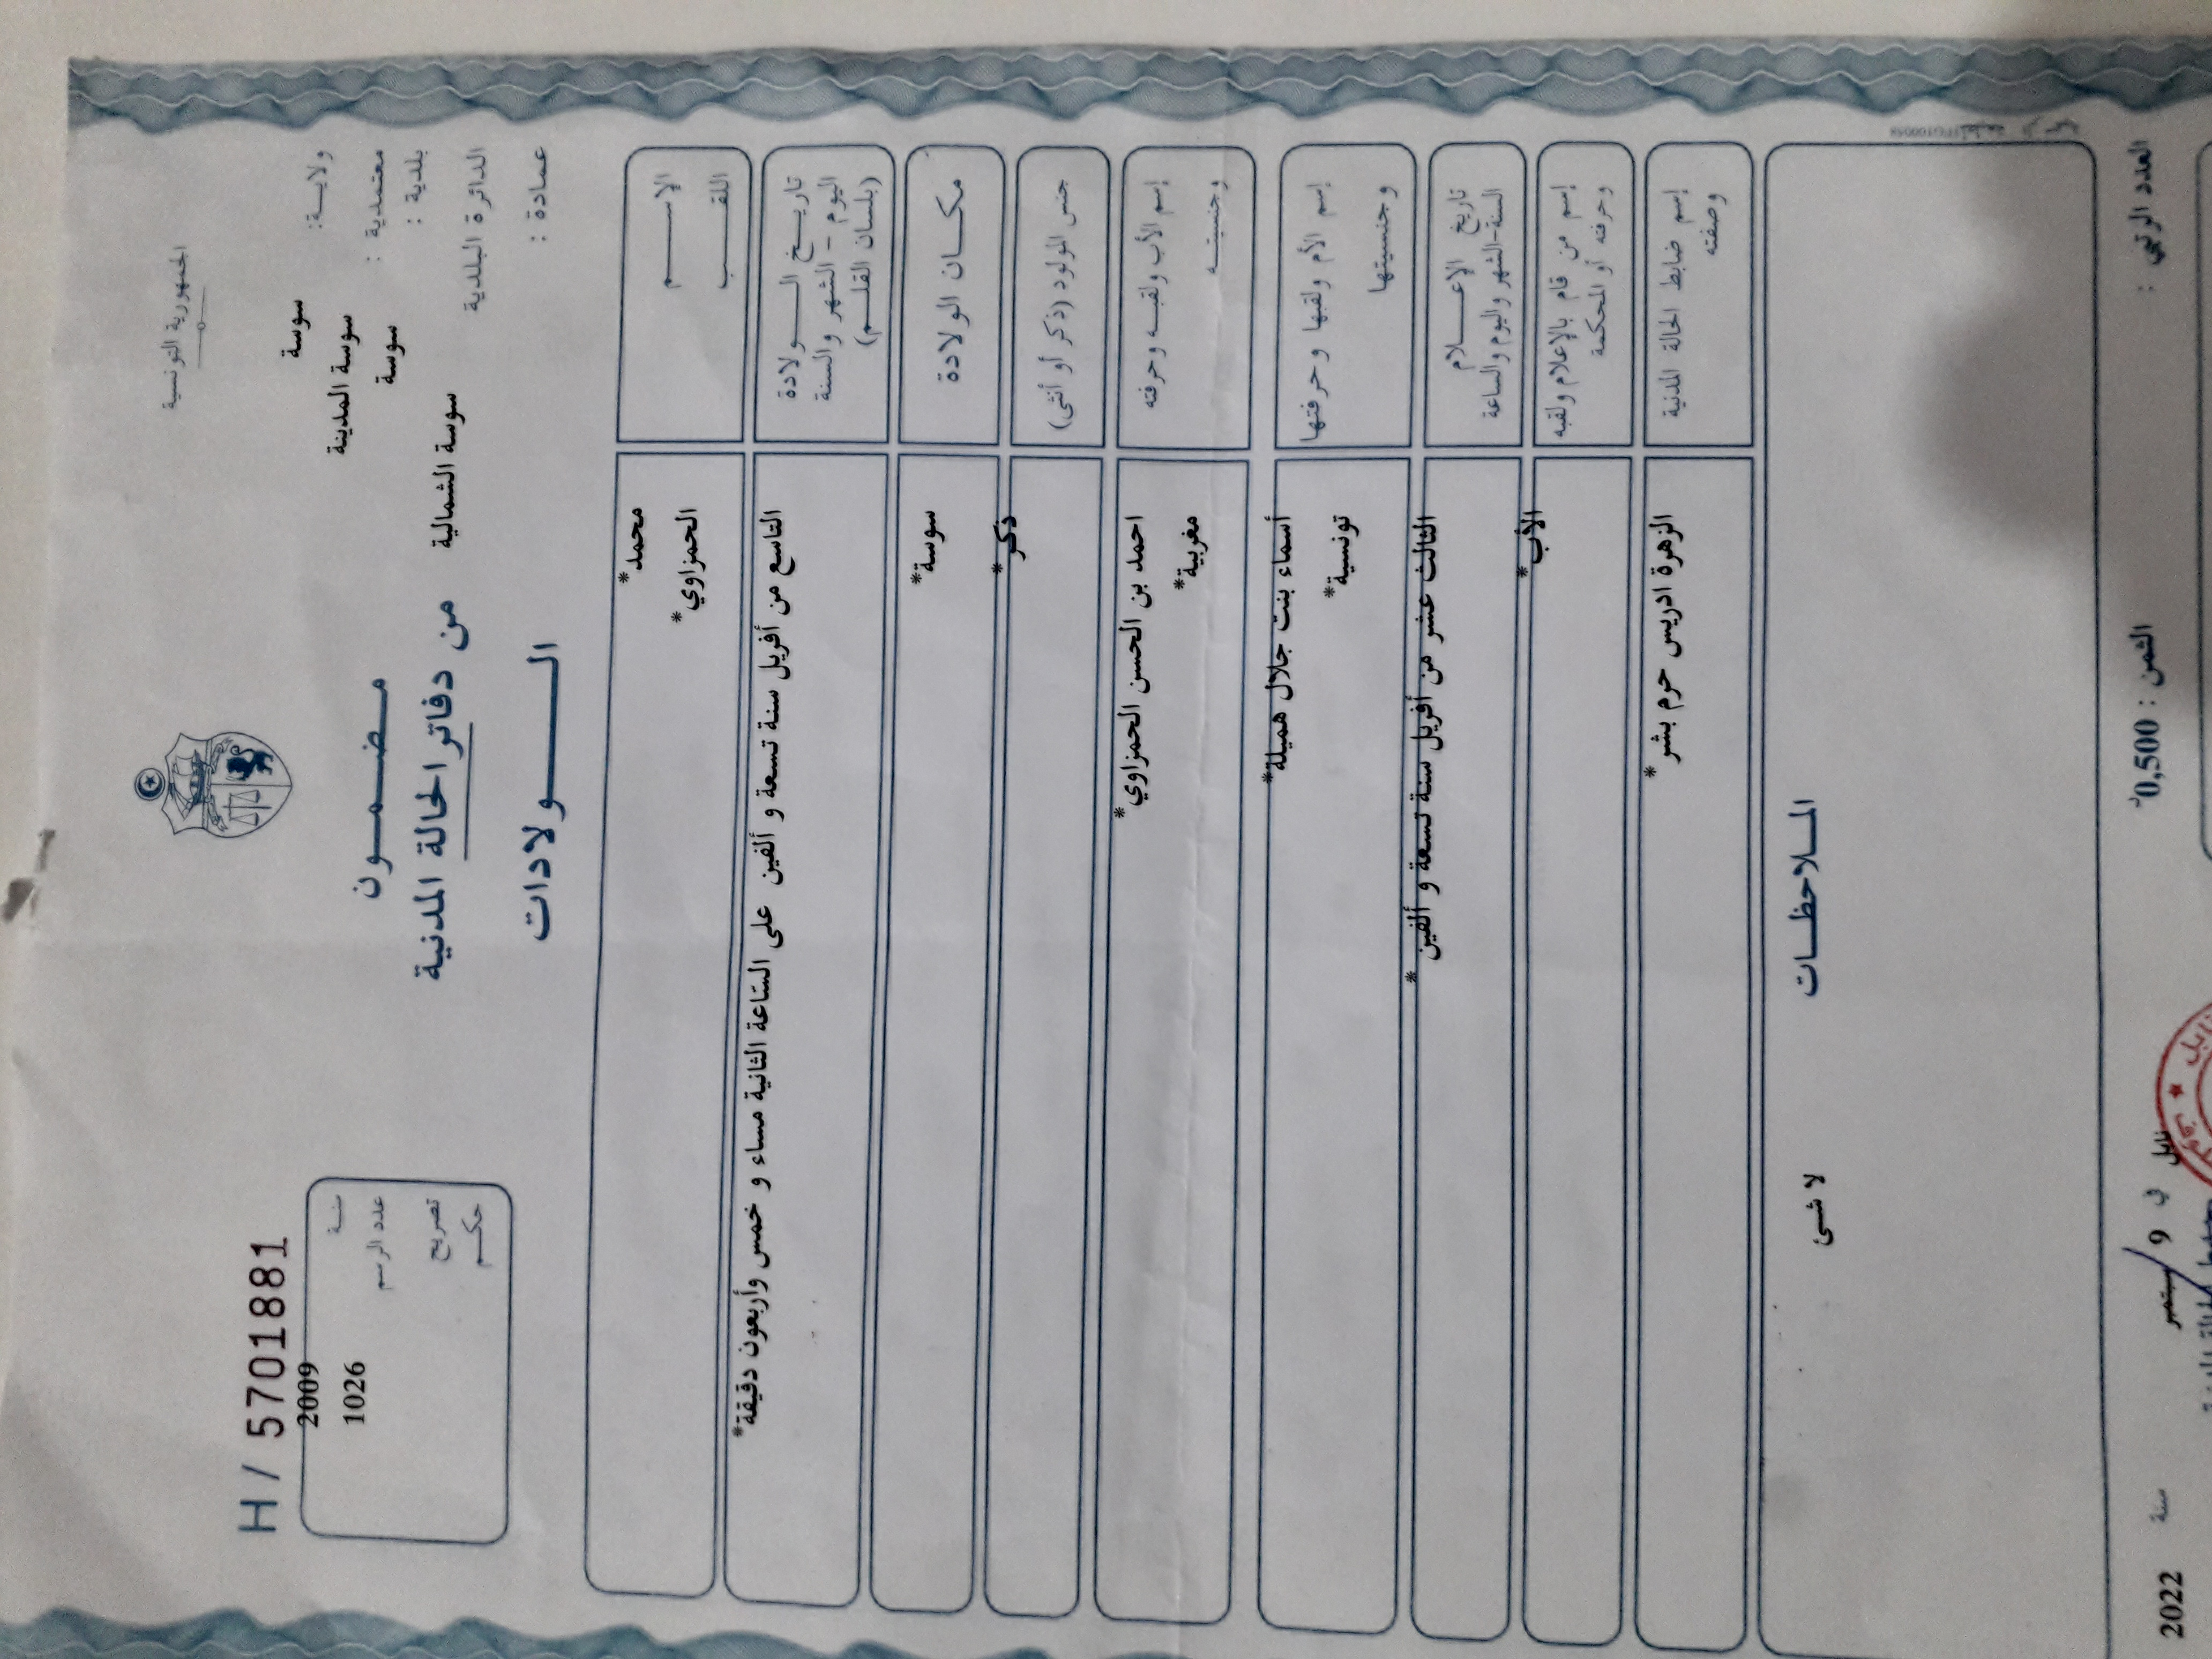 الجمهورية التونسية
ولاية: سوسة
معتمدية : سوسة المدينة
بلدية : سوسة
الدائرة البلدية سوسة الشمالية
عمادة :
H / 5701881
سنة 2009
عدد الرسم 1026
تصريح
حكم
مضمون
من دفاتر الحالة المدنية
الولادات
الإسم محمد*
اللقب الحمزاوي*
تاريخ الولادة التاسع من أفريل سنة تسعة و ألفين على الساعة الثانية مساء و خمس وأربعون دقيقة*
اليوم - الشهر والسنة
(بلسان القلم)
مكان الولادة سوسة*
جنس المولود (ذكر أو أنثى) ذكر*
إسم الأب ولقبه وحرفته احمد بن الحسن الحمزاوي*
وجنسيته مغربية*
إسم الأم ولقبها وحرفتها أسماء بنت جلال هميلة*
وجنسيتها تونسية*
تاريخ الإعلام الثالث عشر من أفريل سنة تسعة و ألفين *
السنة-الشهر واليوم والساعة
إسم من قام بالإعلام ولقبه الأب*
وحرفته أو المحكمة
إسم ضابط الحالة المدنية الزهرة ادريس حرم بشر*
وصفته
الملاحظات
لا شئ
العدد الرتبي :
الثمن : 0,500د
نابل في 9 سبتمبر سنة 2022